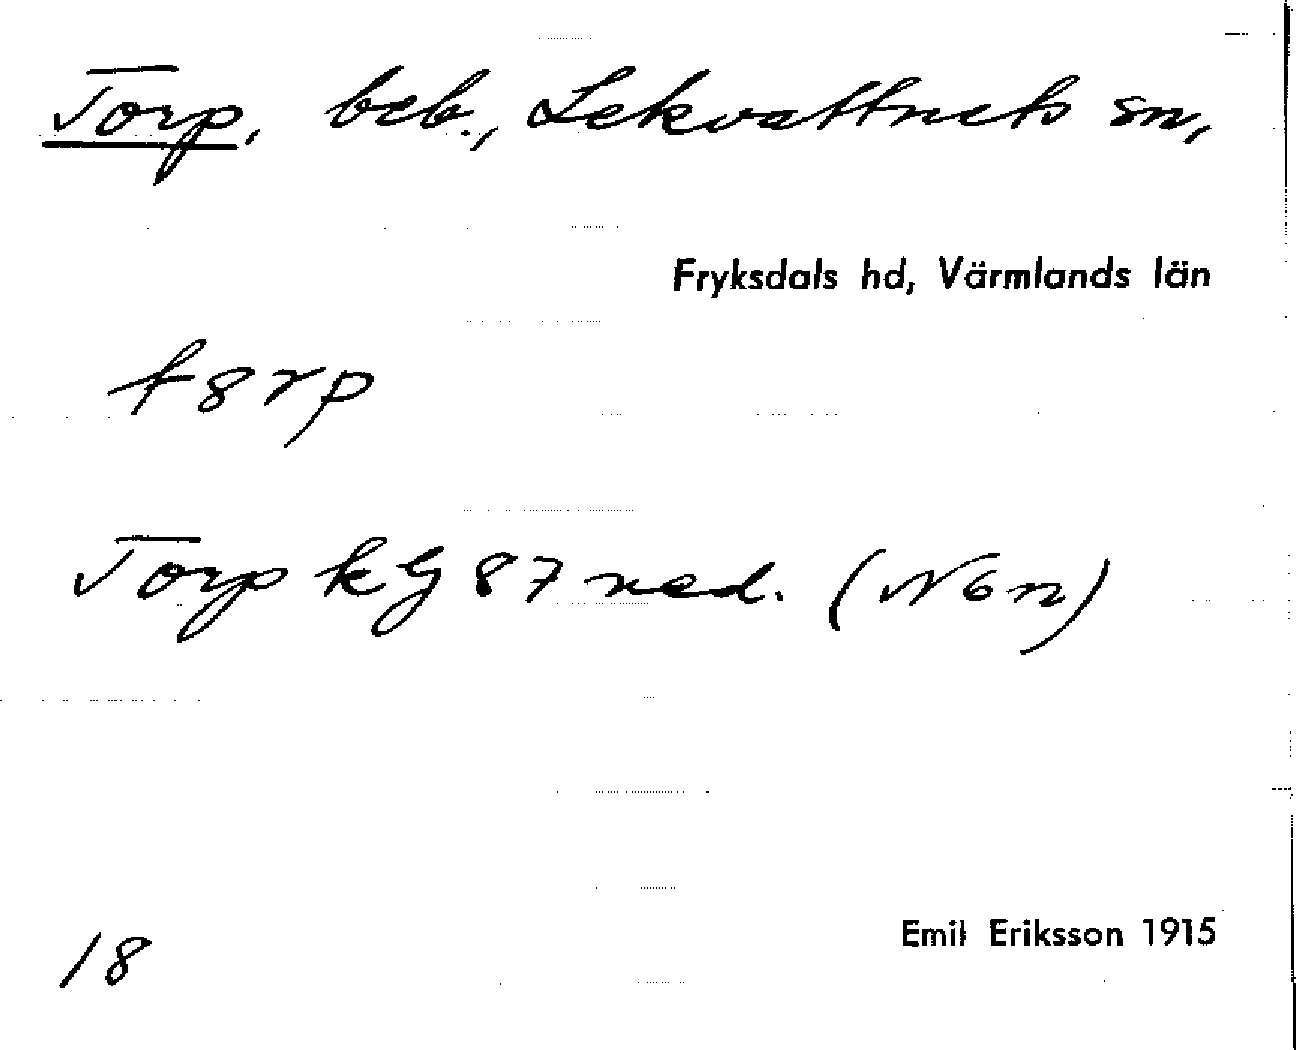 Torp, beb., Lekvattnets sn,
Fryksdals hd, Värmlands län
t8rp
Torp kG 87 ned. (N6n)
18
Emil Eriksson 1915